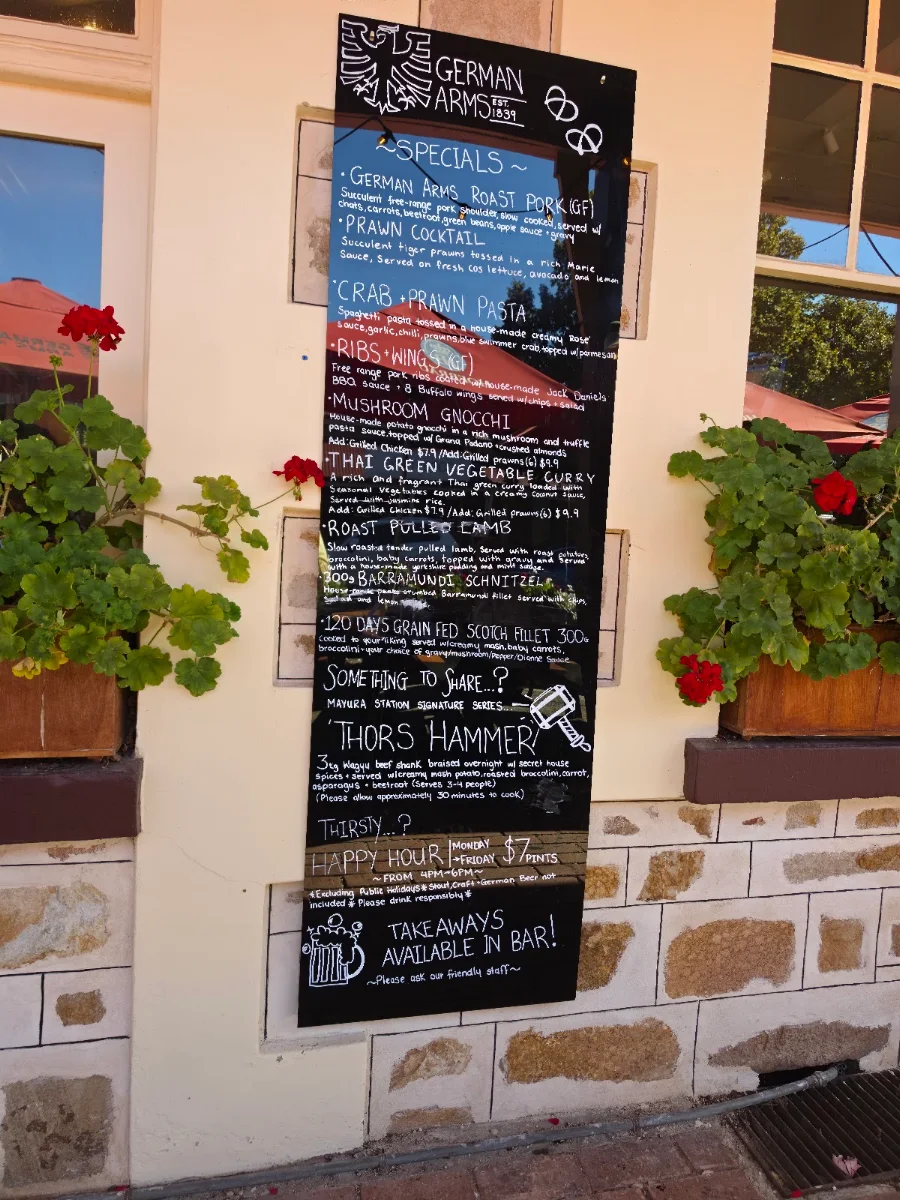 GERMAN
ARMS EST. 1839
~SPECIALS~
· GERMAN ARMS ROAST PORK (GF)
Succulent free-range pork shoulder, slow cooked, served w/
chats, carrots, beetroot, green beans, apple sauce + gravy
· PRAWN COCKTAIL
Succulent tiger prawns tossed in a rich Marie
Sauce, Served on fresh cos lettuce, avocado and lemon
· CRAB + PRAWN PASTA
Spaghetti pasta tossed in a house-made creamy Rose'
sauce, garlic, chilli, prawns, blue swimmer crab, topped w/ parmesan
· RIBS + WINGS (GF)
Free range pork ribs coated w/ house-made Jack Daniels
BBQ sauce + 8 Buffalo wings served w/ chips + salad
· MUSHROOM GNOCCHI
House-made potato gnocchi in a rich mushroom and truffle
pasta sauce, topped w/ Grana Padano + crushed almonds
Add: Grilled Chicken $7.9 / Add: Grilled prawns (6) $9.9
· THAI GREEN VEGETABLE CURRY
A rich and fragrant Thai green curry loaded with
Seasonal Vegetables cooked in a creamy Coconut Sauce,
Served with jasmine rice.
Add: Grilled Chicken $7.9 / Add: Grilled prawns (6) $9.9
· ROAST PULLED LAMB
Slow roasted tender pulled lamb, Served with roast potatoes,
broccolini, baby carrots, topped with gravy and Served
with a house-made yorkshire pudding and mint sauce.
· 300g BARRAMUNDI SCHNITZEL
House-made crumbed Barramundi fillet Served with chips,
Salad and lemon
· 120 DAYS GRAIN FED SCOTCH FILLET 300g
Cooked to your liking served w/ creamy mash, baby carrots,
broccolini + your choice of gravy/mushroom/Pepper/Dianne Sauce
SOMETHING TO SHARE...?
MAYURA STATION SIGNATURE SERIES...
'THORS HAMMER'
3kg Wagyu beef shank braised overnight w/ secret house
spices + served w/ creamy mash potato, roasted broccolini, carrot,
asparagus + beetroot (Serves 3-4 people)
(Please allow approximately 30 minutes to cook)
THIRSTY...?
HAPPY HOUR | MONDAY →FRIDAY $7 PINTS
~FROM 4PM-6PM~
*Excluding Public Holidays* Stout, Craft + German Beer not
included * Please drink responsibly *
TAKEAWAYS
AVAILABLE IN BAR!
~Please ask our friendly staff~